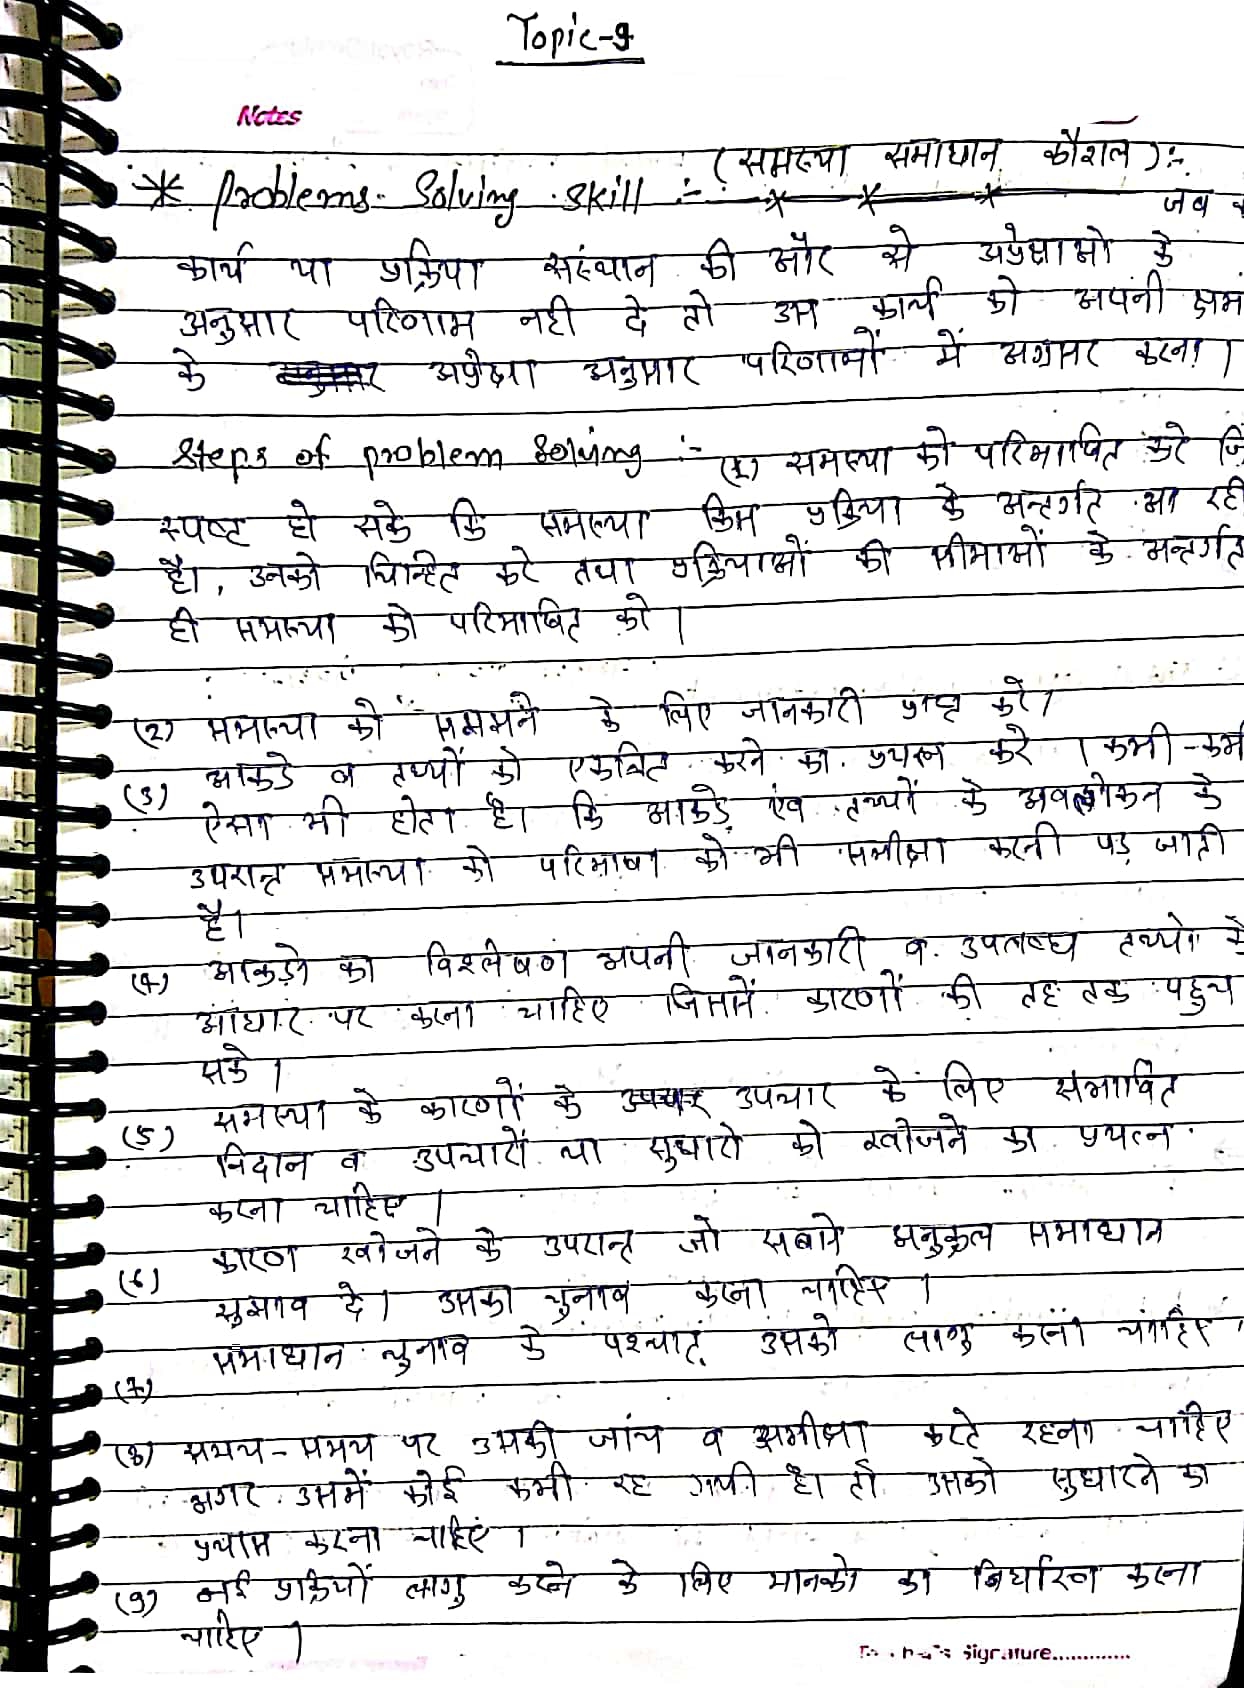 Topic-9
Notes
(समस्या समाधान कौशल):-
* Problems Solving Skill :-
जब
कार्य या प्रक्रिया संस्थान की और से अपेक्षाओ के
अनुसार परिणाम नही दे तो उस कार्य को अपनी
के अपेक्षा अनुसार परिणामों में अग्रसर करना।
Steps of problem Solving :- (1) समस्या को परिभाषित करे
स्पष्ट हो सके कि समस्या किस प्रक्रिया के अन्तर्गत आ रही
है।, उनको चिन्हित करे तथा प्रक्रियाओं की सीमाओं के अन्तर्गत
ही समस्या को परिभाषित करे।
(2) समस्या को समझने के लिए जानकारी प्राप्त करे।
(3) आकडे व तथ्यों को एकत्रित करने का प्रयत्न करे। कभी-कभी
ऐसा भी होता है। कि आकडे़ एंव तथ्यों के अवलोकन के
उपरान्त समस्या को परिभाषा को भी समीक्षा करनी पड़ जाती
है।
(4) आकड़ो का विश्लेषण अपनी जानकारी व उपलब्ध तथ्यो के
आधार पर करना चाहिए जिससे कारणों की तह तक पहुच
सके।
(5) समस्या के कारणों के उपचार के लिए संभावित
निदान व उपचारों या सुधारो को खोजने का प्रयत्न
करना चाहिए।
(6) कारण खोजने के उपरान्त जो सबसे अनुकूल समाधान
सुझाव दे। उसका चुनाव करना चाहिए।
(7) समाधान चुनाव के पश्चात् उसको लागु करना चाहिए।
(8) समय-समय पर उसकी जांच व समीक्षा करते रहना चाहिए
अगर उसमें कोई कमी रह गयी है। तो उसको सुधारने का
प्रयास करना चाहिए।
(9) नई प्रक्रियों लागु करने के लिए मानको का निर्धारण करना
चाहिए।
Signature.............